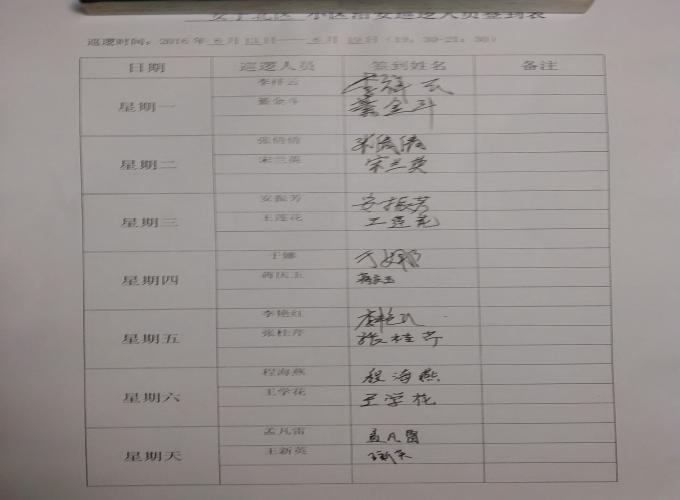 小区治安巡逻人员签到表
巡逻时间：2016年 6月13日——6月19日（19：30-21：30）
日期 巡逻人员 签到姓名 备注
星期一
李祥云 李祥云
董金斗 董金斗
星期二
张倩倩 张倩倩
宋兰英 宋兰英
星期三
安振芳 安振芳
王莲花 王莲花
星期四
于娜 于娜
蒋庆玉 蒋庆玉
星期五
李艳红 李艳红
张桂芹 张桂芹
星期六
程海燕 程海燕
王学花 王学花
星期天
孟凡雷 孟凡雷
王新英 王新英